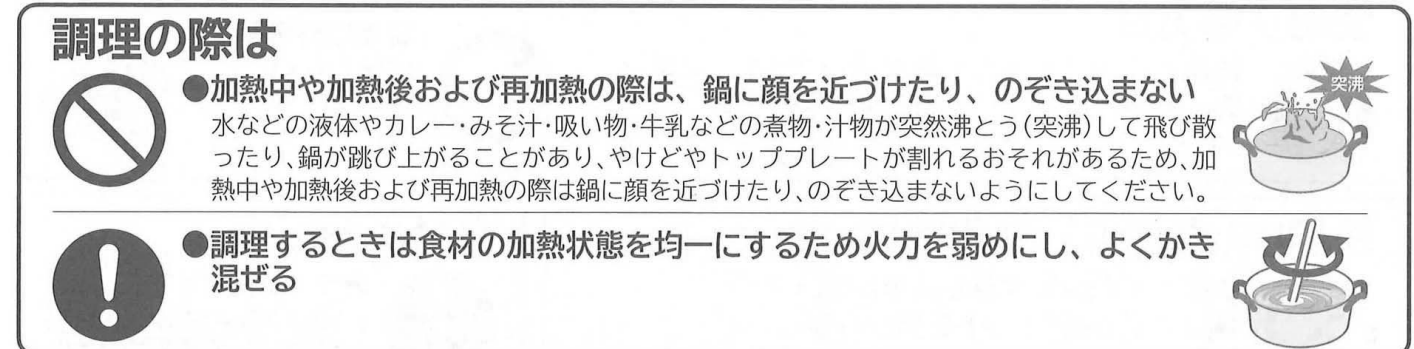 調理の際は
●加熱中や加熱後および再加熱の際は、鍋に顔を近づけたり、のぞき込まない
水などの液体やカレー･みそ汁･吸い物･牛乳などの煮物･汁物が突然沸とう(突沸)して飛び散
ったり、鍋が跳び上がることがあり、やけどやトッププレートが割れるおそれがあるため、加
熱中や加熱後および再加熱の際は鍋に顔を近づけたり、のぞき込まないようにしてください。
突沸
●調理するときは食材の加熱状態を均一にするため火力を弱めにし、よくかき
混ぜる